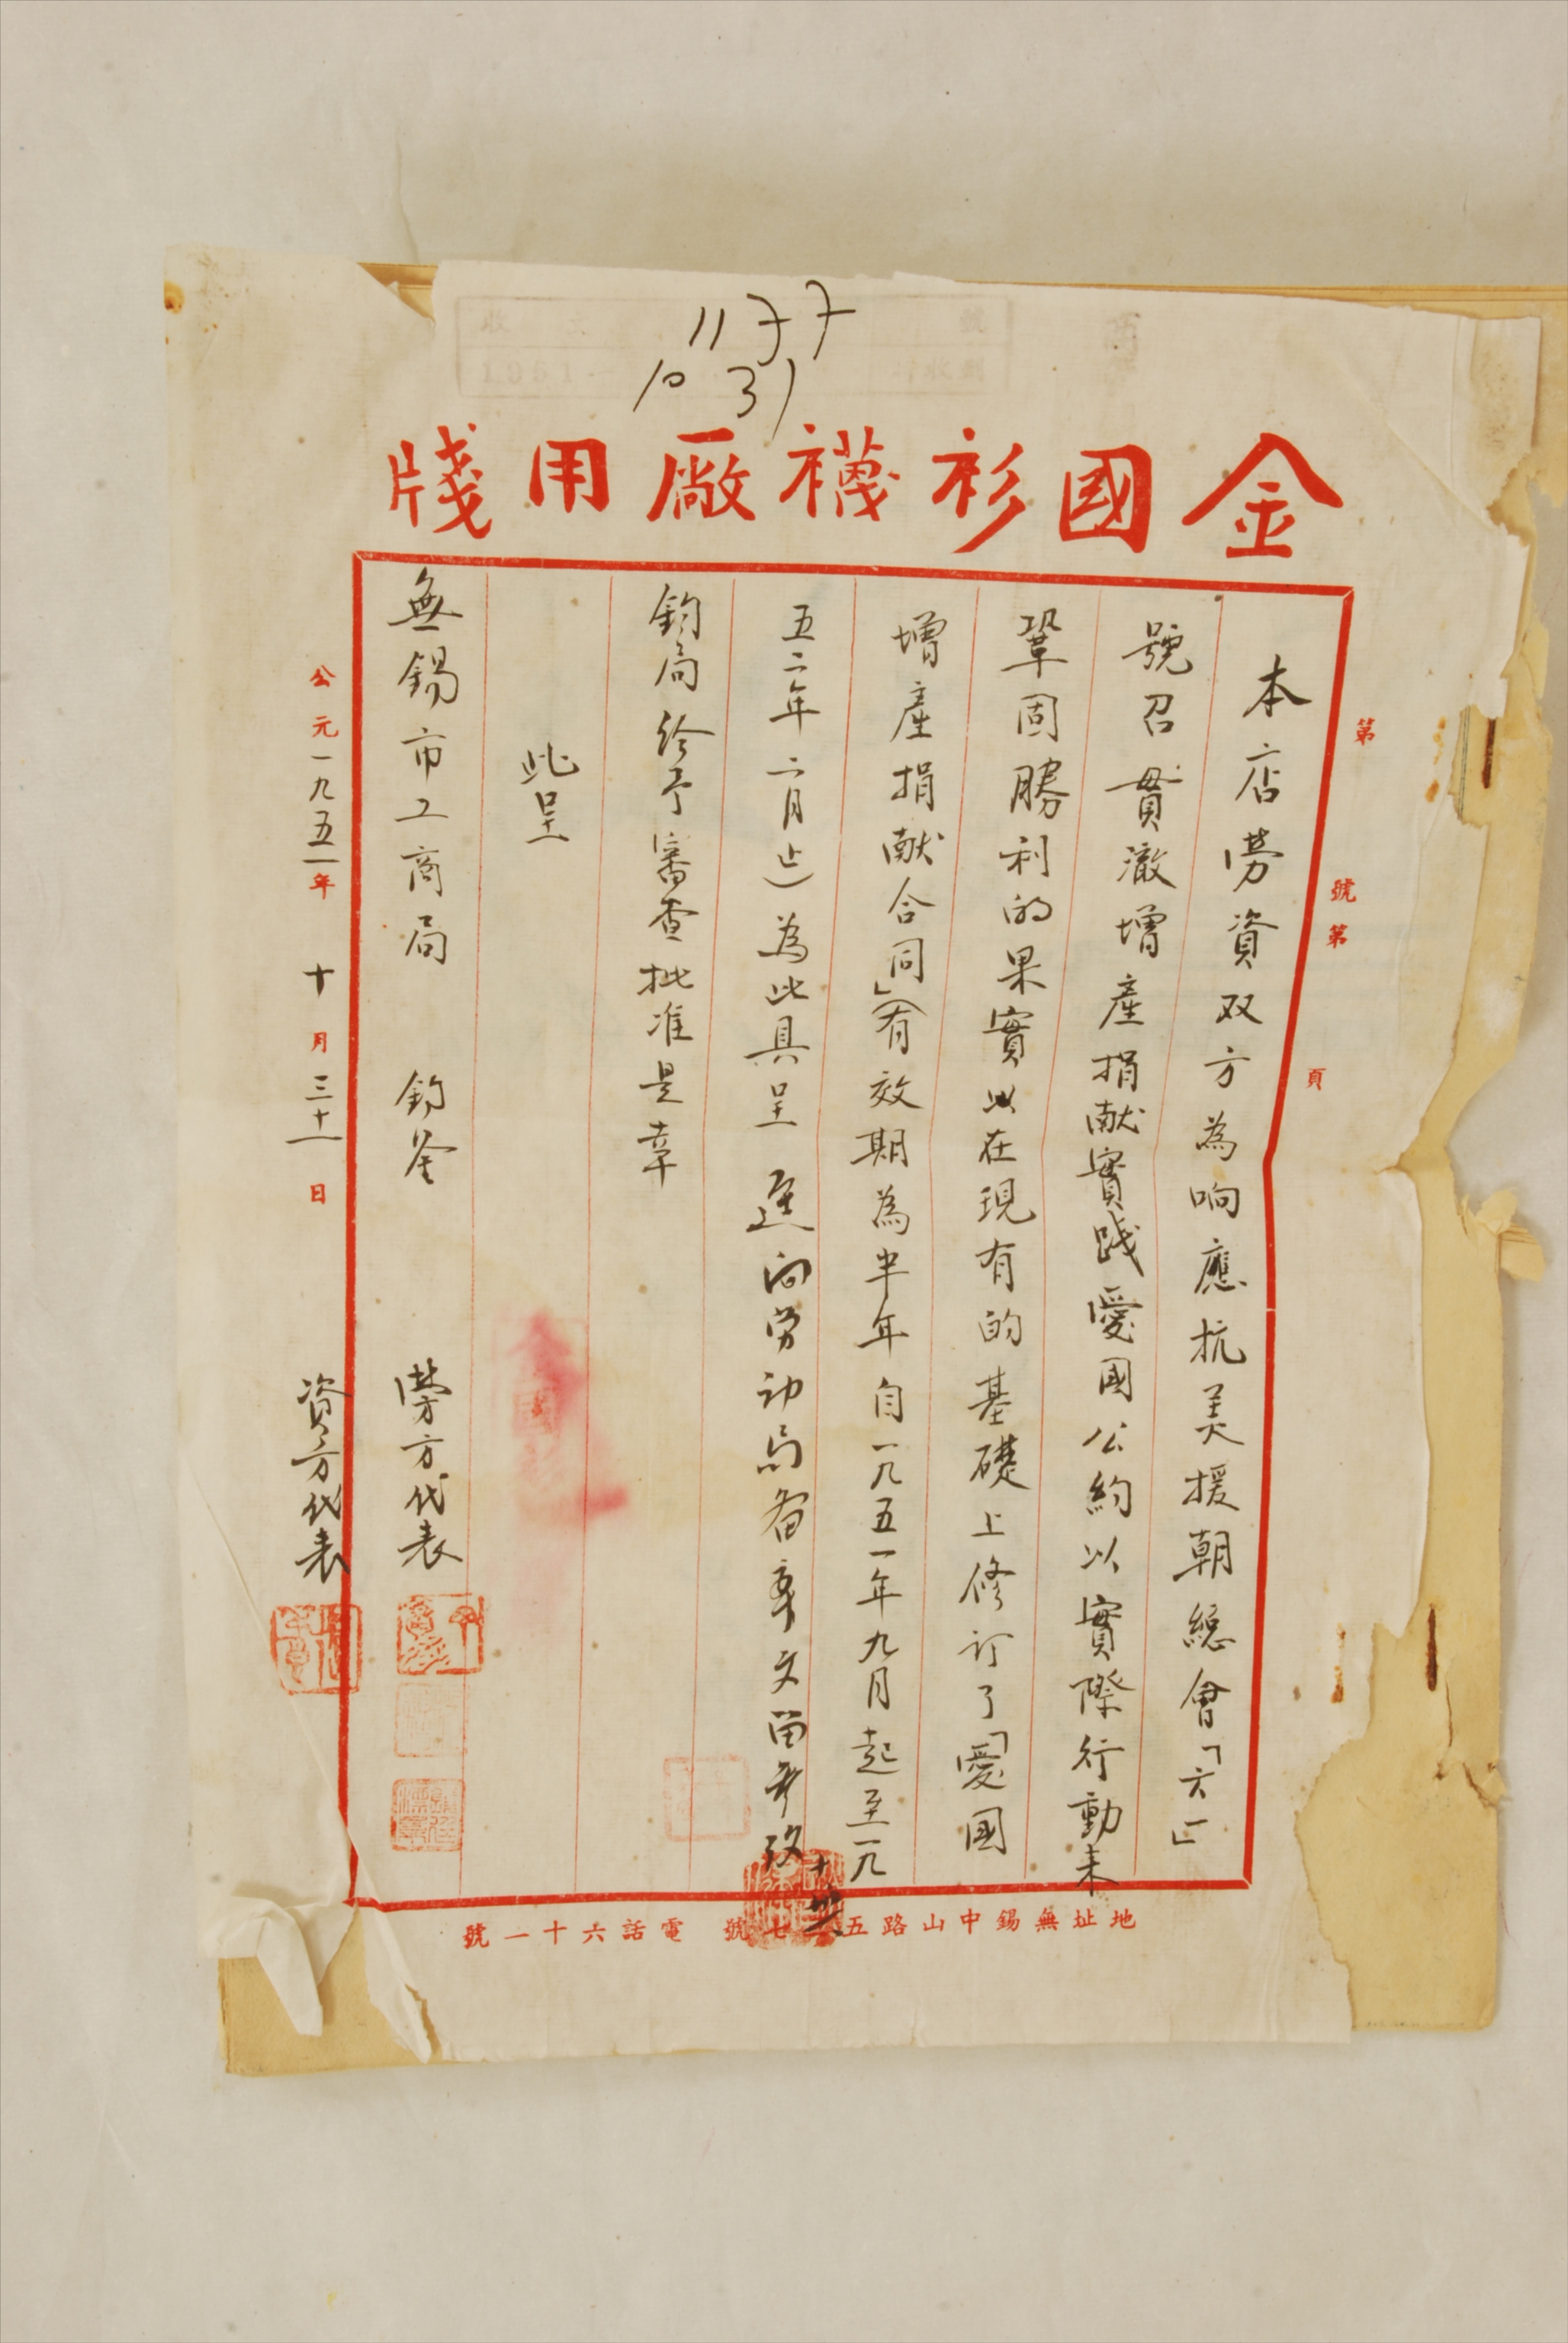 1177
10 31
金國衫襪廠用牋
第 號第 頁
本店勞資双方為响應抗美援朝總會「六一」
號召貫澈增產捐献實踐愛國公約以實際行動来
鞏固勝利的果實以在現有的基礎上修訂了「愛國
增產捐献合同」(有效期為半年自一九五一年九月起至一九
五二年二月止)為此具呈
逕向劳动局备案文留存改
鈞局给予審查批准是幸
此呈
無錫市工商局 鈞鉴
勞方代表
資方代表
公元一九五一年十月三十一日
地址無錫中山路五 七號 電話六十一號